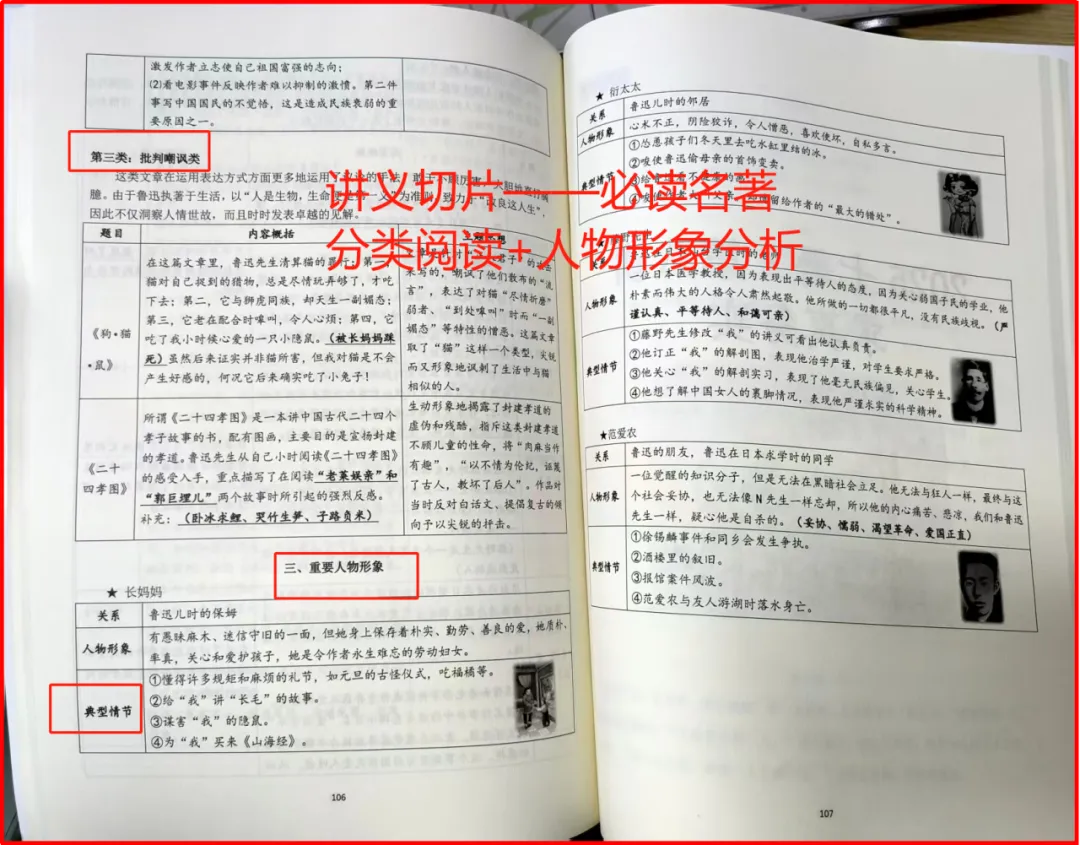 激发作者立志使自己祖国富强的志向；
(2)看电影事件反映作者难以抑制的激愤。第二件
事写中国国民的不觉悟，这是造成民族衰弱的重
要原因之一。
第三类：批判嘲讽类
这类文章在运用表达方式方面更多地运用了
胆。由于鲁迅执著于生活，以“人是生物，生命
因此不仅洞察人情世故，而且时时发表卓越的见解。
讲义切片——必读名著
分类阅读+人物形象分析
题目
内容概括
《狗·猫
·鼠》
在这篇文章里，鲁迅先生清算猫的罪行：第一，
猫对自己捉到的猎物，总是尽情玩弄够了，才吃
下去；第二，它与狮虎同族，却天生一副媚态；
第三，它老在配合时嗥叫，令人心烦；第四，它
吃了我小时候心爱的一只小隐鼠。（被长妈妈踩
死）虽然后来证实并非猫所害，但我对猫是不会
产生好感的，何况它后来确实吃了小兔子！
来写的，嘲讽了他们散布的“流
言”，表达了对猫“尽情折磨”
弱者、“到处嗥叫”时而“一副
媚态”等特性的憎恶。这篇文章
取了“猫”这样一个类型，尖锐
而又形象地讽刺了生活中与猫
相似的人。
《二十
四孝图》
所谓《二十四孝图》是一本讲中国古代二十四个
孝子故事的书，配有图画，主要目的是宣扬封建
的孝道。鲁迅先生从自己小时阅读《二十四孝图》
的感受入手，重点描写了在阅读“老莱娱亲”和
“郭巨埋儿”两个故事时所引起的强烈反感。
补充：（卧冰求鲤、哭竹生笋、子路负米）
生动形象地揭露了封建孝道的
虚伪和残酷，指斥这类封建孝道
不顾儿童的性命，将“肉麻当作
有趣”，“以不情为伦纪，诬蔑
了古人，教坏了后人”。作品对
当时反对白话文、提倡复古的倾
向予以尖锐的抨击。
三、重要人物形象
★ 长妈妈
关系
鲁迅儿时的保姆
人物形象
有愚昧麻木、迷信守旧的一面，但她身上保存着朴实、勤劳、善良的爱，她质朴、
率真，关心和爱护孩子，她是令作者永生难忘的劳动妇女。
典型情节
①懂得许多规矩和麻烦的礼节，如元旦的古怪仪式，吃福橘等。
②给“我”讲“长毛”的故事。
③谋害“我”的隐鼠。
④为“我”买来《山海经》。
106
★ 衍太太
关系
鲁迅儿时的邻居
人物形象
心术不正，阴险狡诈，令人憎恶，喜欢使坏，自私多言。
典型情节
①怂恿孩子们冬天里去吃水缸里结的冰。
②唆使鲁迅偷母亲的首饰变卖。
留给作者的“最大的错处”。
人物形象
一位日本医学教授，因为表现出平等待人的态度，因为关心弱国子民的学业，他
朴素而伟大的人格令人肃然起敬。他所做的一切都很平凡，没有民族歧视。（严
谨认真、平等待人、和蔼可亲）
典型情节
①藤野先生修改“我”的讲义可看出他认真负责。
②他订正“我”的解剖图，表现他治学严谨，对学生要求严格。
③他关心“我”的解剖实习，表现了他毫无民族偏见，关心学生。
④他想了解中国女人的裹脚情况，表现他严谨求实的科学精神。
★范爱农
关系
鲁迅的朋友，鲁迅在日本求学时的同学
人物形象
一位觉醒的知识分子，但是无法在黑暗社会立足。他无法与狂人一样，最终与这
个社会妥协，也无法像N先生一样忘却，所以他的内心痛苦、悲凉，我们和鲁迅
先生一样，疑心他是自杀的。（妥协、懦弱、渴望革命、爱国正直）
典型情节
①徐锡麟事件和同乡会发生争执。
②酒楼里的叙旧。
③报馆案件风波。
④范爱农与友人游湖时落水身亡。
107